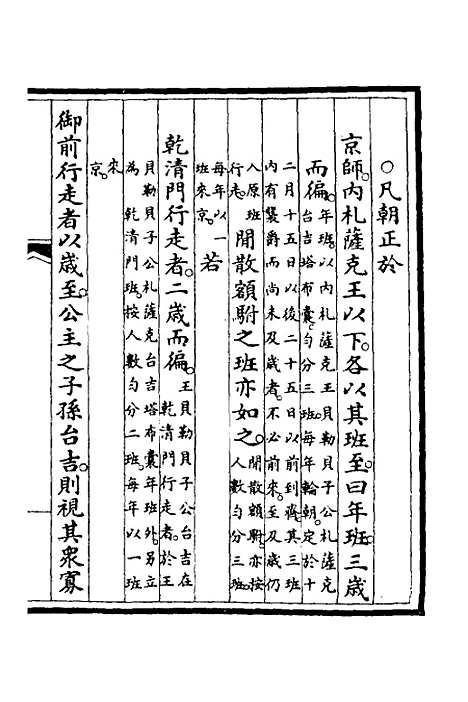 ○凡朝正於
京師。內札薩克王以下。各以其班至。曰年班。三歲
而徧。
年班。以內札薩克王貝勒貝子公札薩克
台吉塔布囊。勻分三班。每年輪朝。定於十
二月十五日以後二十五日以前到齊。其三班
內有襲爵而尚未及歲者。不必前來。至及歲仍
入原班
行走。
閒散額駙之班亦如之。
閒散額駙。亦按
人數勻分三班。
每年以一
班來京。
若
乾清門行走者。二歲而徧。
王貝勒貝子公台吉在
乾清門行走者。於王
貝勒貝子公札薩克台吉塔布囊年班外。另立
為 乾清門班。按人數勻分二班。每年以一班
來
京。
御前行走者以歲至。公主之子孫台吉。則視其衆寡